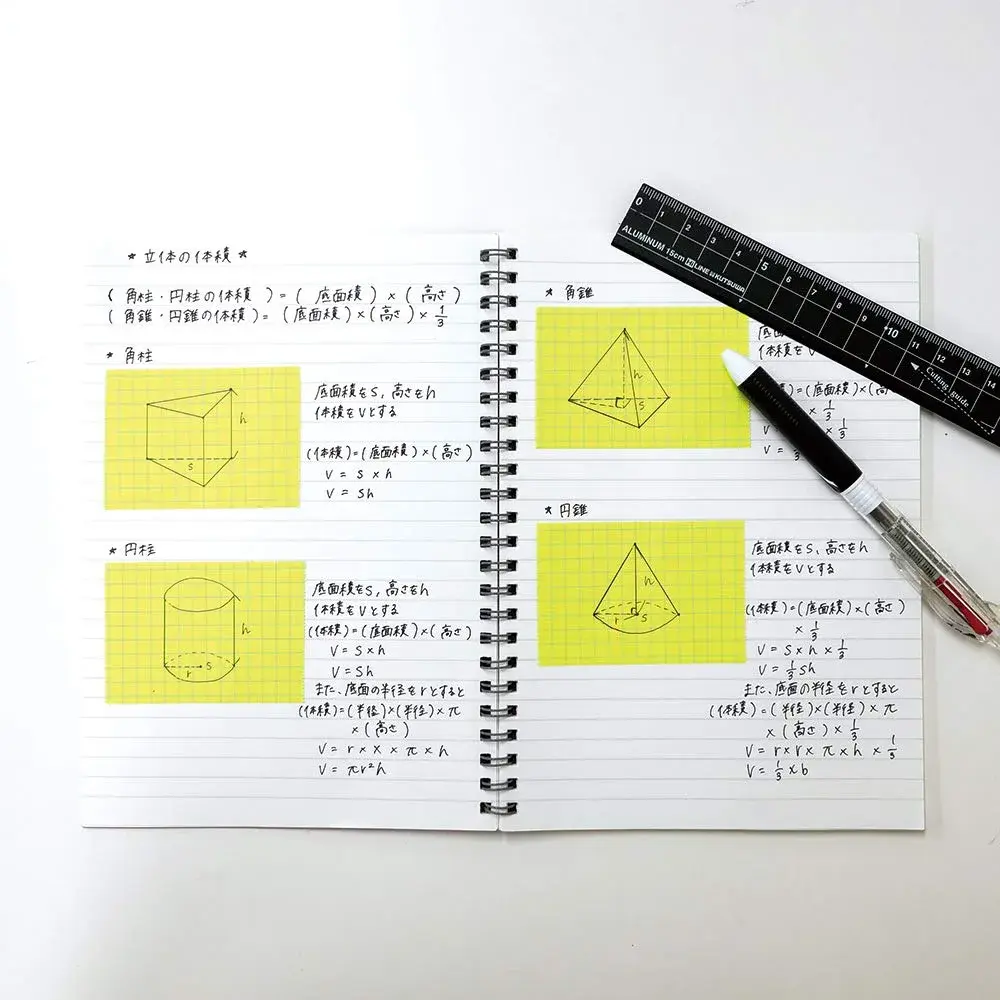 ★ 立体の体積 ★
( 角柱・円柱の体積 ) = ( 底面積 ) × ( 高さ )
( 角錐・円錐の体積 ) = ( 底面積 ) × ( 高さ ) × 1/3
★ 角柱
h
S
底面積をS, 高さをh
体積をVとする
(体積) = (底面積) × (高さ)
V = S × h
V = Sh
★ 円柱
h
S
r
底面積をS, 高さをh
体積をVとする
(体積) = (底面積) × (高さ)
V = S × h
V = Sh
また、底面の半径をrとすると
(体積) = (半径) × (半径) × π
× (高さ)
V = r × X × π × h
V = πr²h
★ 角錐
h
S
体積を
) = (底面積) × (高さ
× 1/3
V =
★ 円錐
h
r
S
底面積をS, 高さをh
体積をVとする
(体積) = (底面積) × (高さ)
× 1/3
V = S × h × 1/3
V = 1/3 Sh
また、底面の半径をrとすると
(体積) = (半径) × (半径) × π
× (高さ) × 1/3
V = r × r × π × h × 1/3
V = 1/3 × b
0 1 2 3 4 5 6 7 8 9 10 11 12 13 14
ALUMINUM 15cm LINE KUTSUWA
Cutting guide